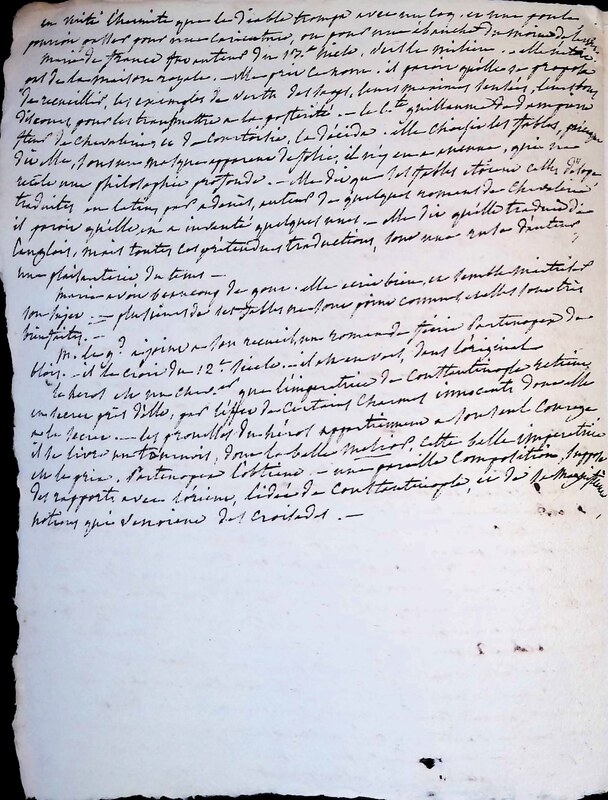 en vérité l'hermite que le diable trompa avec un coq, et une poule
pourroit passer pour une caricature, ou pour une ébauche du moine de
marie de france fut auteur du 13.e siecle, vers le milieu. elle
pas de la maison royale. elle prit ce nom. il paroit qu'elle se proposa
de recueillir, les exemples de vertu des sages, leurs maximes sensées, leurs bons
discours, pour les transmettre a la posterité. — le C.te guillaume de dampierre
fleur de chevalerie et de courtoisie, la décida. elle choisit les fables,
dit elle, sous un masque apparent de folie, il n'y en a aucune, qui ne
recele une philosophie profonde. — elle dit que les fables etoient celles d'
traduites en latin par auteur de quelques romans de chevalerie
il paroit qu'elle en a inventé quelques unes — elle dit qu'elle traduit de
l'anglois, mais toutes ces prétendues traductions, sont une ruse d'auteur,
une plaisanterie du tems —
marie avoit beaucoup de gout. elle ecrit bien, et semble maitriser
son sujet. — plusieurs de ses fables ne sont point communes et elles sont très
bien faites. —
M. le g.d a joint a son recueil, un roman de féerie Partenopex de
blois. — il le croit du 12.e siecle. — il est en vers, dans l'original
le heros est un que l'imperatrice de Constantinople retient
en secret près d'elle, par l'effet de certains charmes innocents dont elle
a le secret. — les prouesses du héros appartiennent a son seul courage
il se livre un tournois, dont la belle melior, cette belle imperatrice
est le prix. Partenopex l'obtient. — une pareille composition, suppose
des rapports avec l'orient, l'idée de Constantinople, et de sa magnificence,
notions qui vinrent des croisades. —